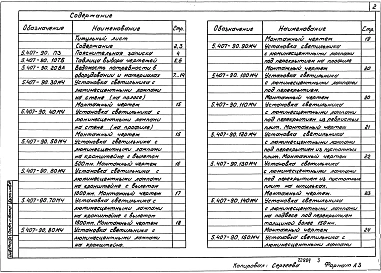 2
Содержание
Обозначение Наименование Стр.
Титульный лист
Содержание 2,3
5.407-90. ПЗ Пояснительная записка 4
5.407-90. 10ТБ Таблица выбора чертежей 5,6
5.407-90. 20ВА Ведомость потребности в
оборудовании и материалах 7..14
5.407-90. 30МЧ Установка светильника с
люминесцентными лампами
на стене (на полосе)
Монтажный чертеж 15
5.407-90. 40МЧ Установка светильника с
люминесцентными лампами
на стене (на профиле)
Монтажный чертеж 15
5.407-90. 50МЧ Установка светильника с
люминесцентными лампами
на кронштейне с вылетом
500мм. Монтажный чертеж 16
5.407-90. 60МЧ Установка светильника с
люминесцентными лампами
на кронштейне с вылетом
800мм. Монтажный чертеж 17
5.407-90. 70МЧ Установка светильника с
люминесцентными лампами
на кронштейне с вылетом
1100мм. Монтажный чертеж 18
5.407-90. 80МЧ Установка светильника с
люминесцентными лампами
на кронштейне.
Обозначение Наименование Стр.
Монтажный чертеж 19
5.407-90. 90МЧ Установка светильника
с люминесцентными лампами
под перекрытием на профиле
Монтажный чертеж 20
5.407-90. 100МЧ Установка светильника
с люминесцентными лампами
под перекрытием.
Монтажный чертеж 20
5.407-90. 110МЧ Установка светильника
с люминесцентными лампами
под перекрытием из ребристых
плит. Монтажный чертеж 21
5.407-90. 120МЧ Установка светильника
с люминесцентными лампами
под перекрытием из пустотных
плит. Монтажный чертеж 22
5.407-90. 130МЧ Установка светильника
с люминесцентными лампами
под перекрытием из пустотных
плит на штангах.
Монтажный чертеж 23
5.407-90. 140МЧ Установка светильника
с люминесцентными лампами
на подвесе под перекрытием
толщиной более 150мм.
Монтажный чертеж 24
5.407-90. 150МЧ Установка светильника с
люминесцентными лампами
22884 3
Копировал: Сергеева Формат А3